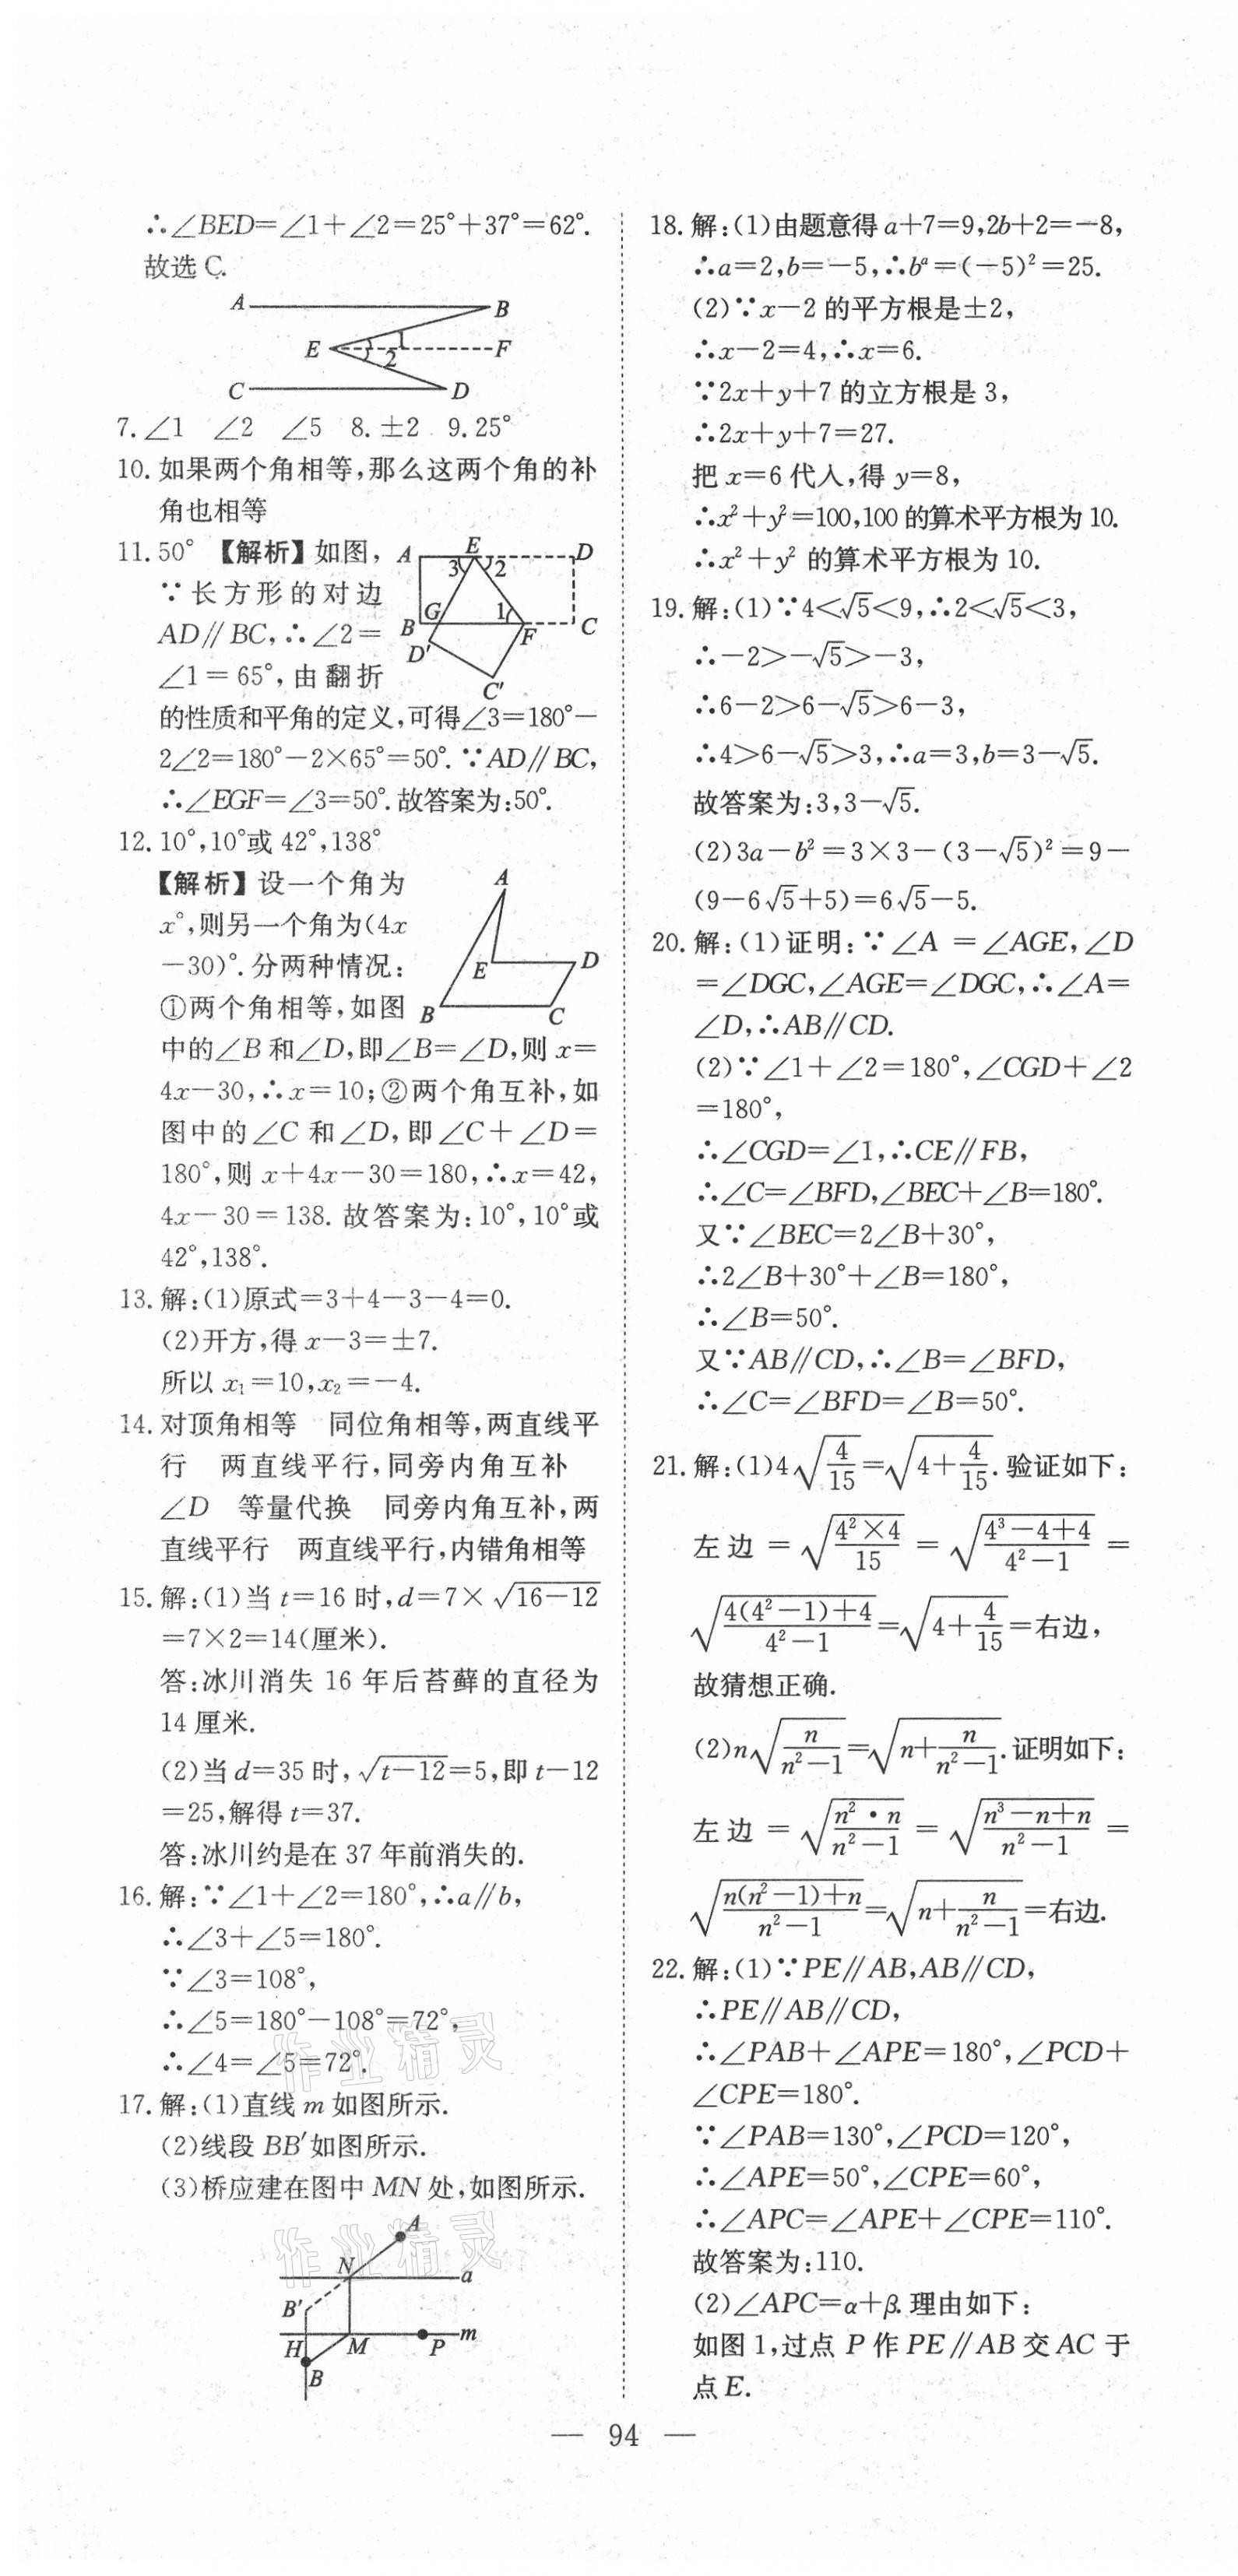 ∴∠BED=∠1+∠2=25°+37°=62°.
故选C.
A B
E 1 2 F
C D
7.∠1 ∠2 ∠5 8.±2 9.25°
10.如果两个角相等,那么这两个角的补
角也相等
11.50° 【解析】如图,
∵长方形的对边
AD∥BC,∴∠2=
∠1=65°,由翻折
A E D
3 2
G 1
B F C
D′
C′
的性质和平角的定义,可得∠3=180°-
2∠2=180°-2×65°=50°.∵AD∥BC,
∴∠EGF=∠3=50°.故答案为:50°.
12.10°,10°或42°,138°
【解析】设一个角为
x°,则另一个角为(4x
-30)°.分两种情况:
①两个角相等,如图
A
E D
B C
中的∠B和∠D,即∠B=∠D,则x=
4x-30,∴x=10;②两个角互补,如
图中的∠C和∠D,即∠C+∠D=
180°,则x+4x-30=180,∴x=42,
4x-30=138.故答案为:10°,10°或
42°,138°.
13.解:(1)原式=3+4-3-4=0.
(2)开方,得x-3=±7.
所以x₁=10,x₂=-4.
14.对顶角相等 同位角相等,两直线平
行 两直线平行,同旁内角互补
∠D 等量代换 同旁内角互补,两
直线平行 两直线平行,内错角相等
15.解:(1)当t=16时,d=7×√(16-12)
=7×2=14(厘米).
答:冰川消失16年后苔藓的直径为
14厘米.
(2)当d=35时,√(t-12)=5,即t-12
=25,解得t=37.
答:冰川约是在37年前消失的.
16.解:∵∠1+∠2=180°,∴a∥b,
∴∠3+∠5=180°.
∵∠3=108°,
∴∠5=180°-108°=72°,
∴∠4=∠5=72°.
作业精灵
17.解:(1)直线m如图所示.
(2)线段BB′如图所示.
(3)桥应建在图中MN处,如图所示.
作业精灵
A
N a
B′
H M P m
B
18.解:(1)由题意得a+7=9,2b+2=-8,
∴a=2,b=-5,∴bᵃ=(-5)²=25.
(2)∵x-2的平方根是±2,
∴x-2=4,∴x=6.
∵2x+y+7的立方根是3,
∴2x+y+7=27.
把x=6代入,得y=8,
∴x²+y²=100,100的算术平方根为10.
∴x²+y²的算术平方根为10.
19.解:(1)∵4<√5<9,∴2<√5<3,
∴-2>-√5>-3,
∴6-2>6-√5>6-3,
∴4>6-√5>3,∴a=3,b=3-√5.
故答案为:3,3-√5.
(2)3a-b²=3×3-(3-√5)²=9-
(9-6√5+5)=6√5-5.
20.解:(1)证明:∵∠A=∠AGE,∠D
=∠DGC,∠AGE=∠DGC,∴∠A=
∠D,∴AB∥CD.
(2)∵∠1+∠2=180°,∠CGD+∠2
=180°,
∴∠CGD=∠1,∴CE∥FB,
∴∠C=∠BFD,∠BEC+∠B=180°.
又∵∠BEC=2∠B+30°,
∴2∠B+30°+∠B=180°,
∴∠B=50°.
又∵AB∥CD,∴∠B=∠BFD,
∴∠C=∠BFD=∠B=50°.
21.解:(1)4√(4/15)=√(4+4/15).验证如下:
左边=√((4²×4)/15)=√((4³-4+4)/(4²-1))=
√((4(4²-1)+4)/(4²-1))=√(4+4/15)=右边,
故猜想正确.
(2)n√(n/(n²-1))=√(n+n/(n²-1)).证明如下:
左边=√((n²·n)/(n²-1))=√((n³-n+n)/(n²-1))=
√((n(n²-1)+n)/(n²-1))=√(n+n/(n²-1))=右边.
22.解:(1)∵PE∥AB,AB∥CD,
∴PE∥AB∥CD,
∴∠PAB+∠APE=180°,∠PCD+
∠CPE=180°.
∵∠PAB=130°,∠PCD=120°,
∴∠APE=50°,∠CPE=60°,
∴∠APC=∠APE+∠CPE=110°.
故答案为:110.
(2)∠APC=α+β.理由如下:
如图1,过点P作PE∥AB交AC于
点E.
— 94 —